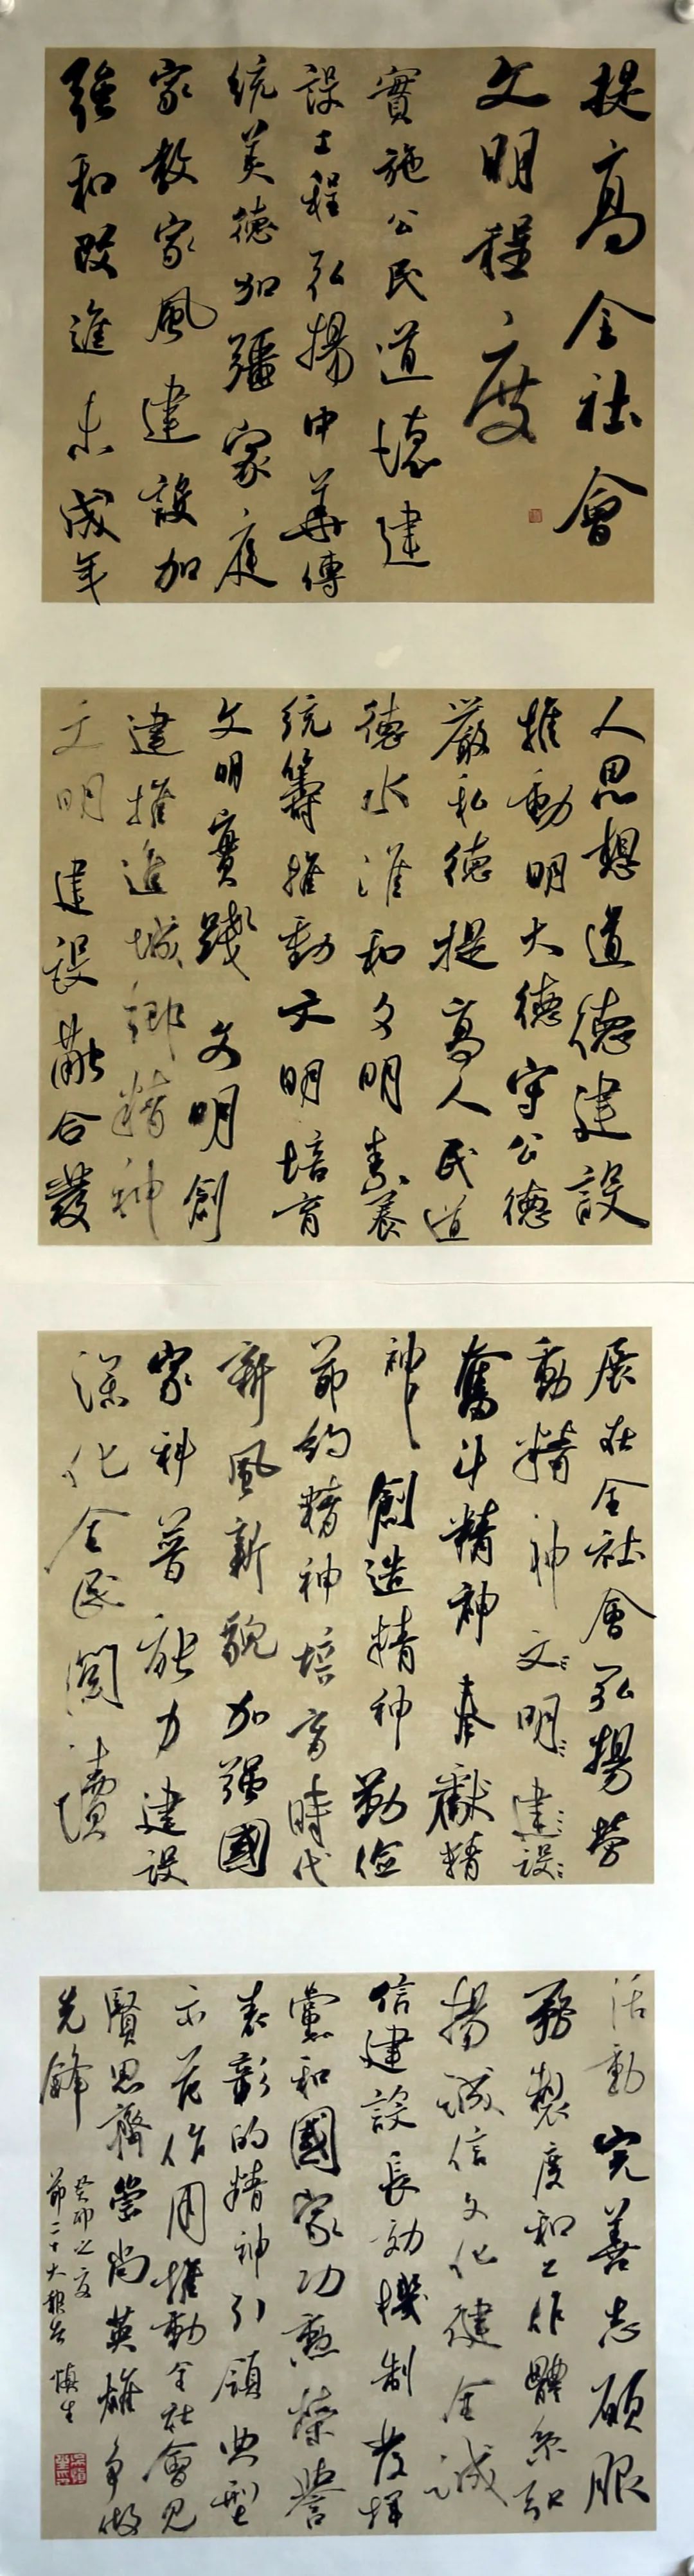 提高全社會
文明程度
實施公民道德建
設工程弘揚中華傳
統美德加強家庭
家教家風建設加
強和改進未成年
人思想道德建設
推動明大德守公德
嚴私德提高人民道
德水準和文明素養
統籌推動文明培育
文明實踐文明創
建推進城鄉精神
文明建設融合發
展在全社會弘揚勞
動精神文明建設
奮斗精神奉獻精
神創造精神勤儉
節約精神培育時代
新風新貌加強國
家科普能力建設
深化全民閱讀
活動完善志願服
務製度和工作體系弘
揚誠信文化健全誠
信建設長効機制發揮
黨和國家功勲榮譽
表彰的精神引領典型
示范作用推動全社會見
賢思齊崇尚英雄爭做
先鋒
癸卯之夏
節二十大報告 慎生